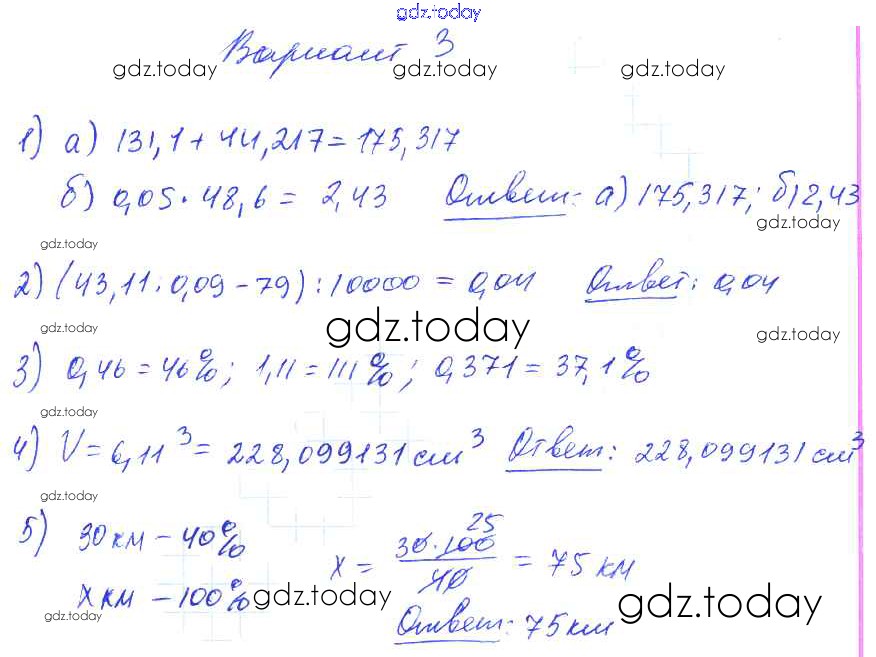 gdz.today
Вариант 3
gdz.today gdz.today gdz.today
1) а) 131,1 + 44,217 = 175,317
б) 0,05 · 48,6 = 2,43 Ответ: а) 175,317; б) 2,43
gdz.today
gdz.today
2) (43,11 : 0,09 - 79) : 10000 = 0,04 Ответ: 0,04
gdz.today gdz.today gdz.today
3) 0,46 = 46%; 1,11 = 111%; 0,371 = 37,1%
gdz.today
4) V = 6,11³ = 228,099131 см³ Ответ: 228,099131 см³
gdz.today
5) 30 км - 40%
х км - 100%
25
х = 30·100/40 = 75 км
gdz.today gdz.today gdz.today
Ответ: 75 км